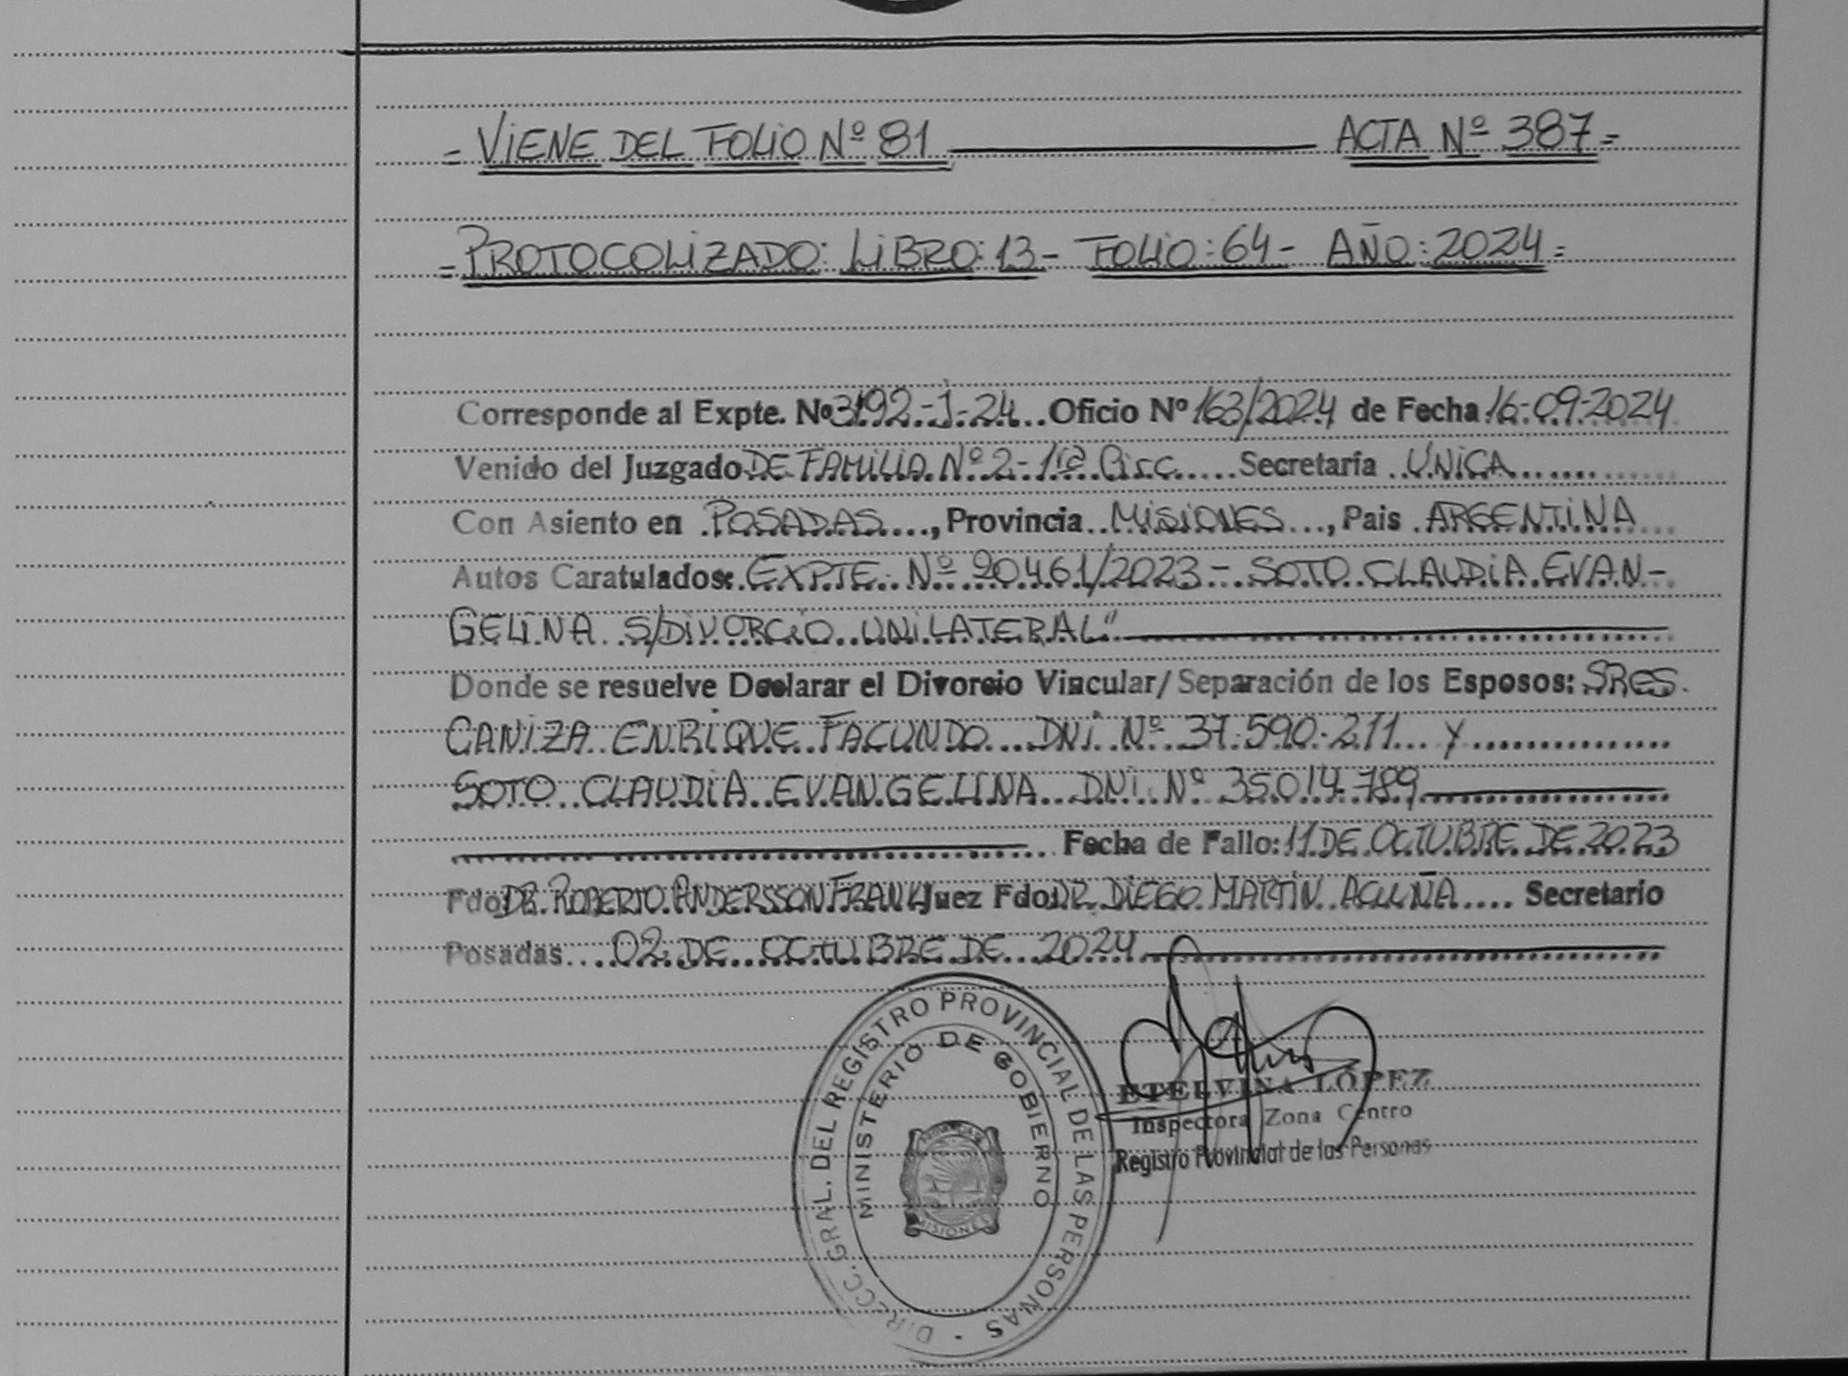 = VIENE DEL FOLIO Nº 81 ACTA Nº 387 =
= PROTOCOLIZADO: LIBRO: 13 - FOLIO: 64 - AÑO: 2024 =
Corresponde al Expte. Nº 3192-J-24 Oficio Nº 163/2024 de Fecha 16-09-2024
Venido del Juzgado DE FAMILIA Nº 2 - 1ra Circ Secretaría UNICA
Con Asiento en POSADAS, Provincia MISIONES, Pais ARGENTINA
Autos Caratulados: EXPTE Nº 90461/2023 - SOTO CLAUDIA EVAN-
GELINA S/DIVORCIO UNILATERAL"
Donde se resuelve Declarar el Divorcio Vincular/Separación de los Esposos: SRES.
CANIZA ENRIQUE FACUNDO DNI Nº 37.590.211 y
SOTO CLAUDIA EVANGELINA DNI Nº 35.014.789
Fecha de Fallo: 11 DE OCTUBRE DE 2023
Fdo DR. ROBERTO ANDERSSON FRANK Juez Fdo: DR. DIEGO MARTÍN ACUÑA Secretario
Posadas 02 DE OCTUBRE DE 2024
DIRECC. GRAL. DEL REGISTRO PROVINCIAL DE LAS PERSONAS
MINISTERIO DE GOBIERNO
MISIONES
ETELVINA LÓPEZ
Inspectora Zona Centro
Registro Provincial de las Personas